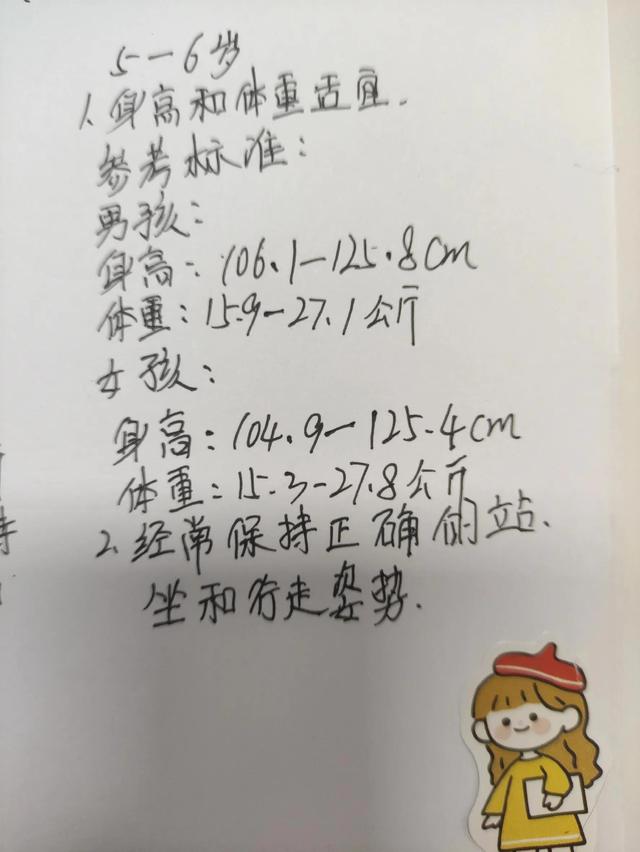 5-6岁
1、身高和体重适宜.
参考标准:
男孩:
身高:106.1-125.8cm
体重:15.9-27.1公斤
女孩:
身高:104.9-125.4cm
体重:15.3-27.8公斤
2、经常保持正确的站、
坐和行走姿势.